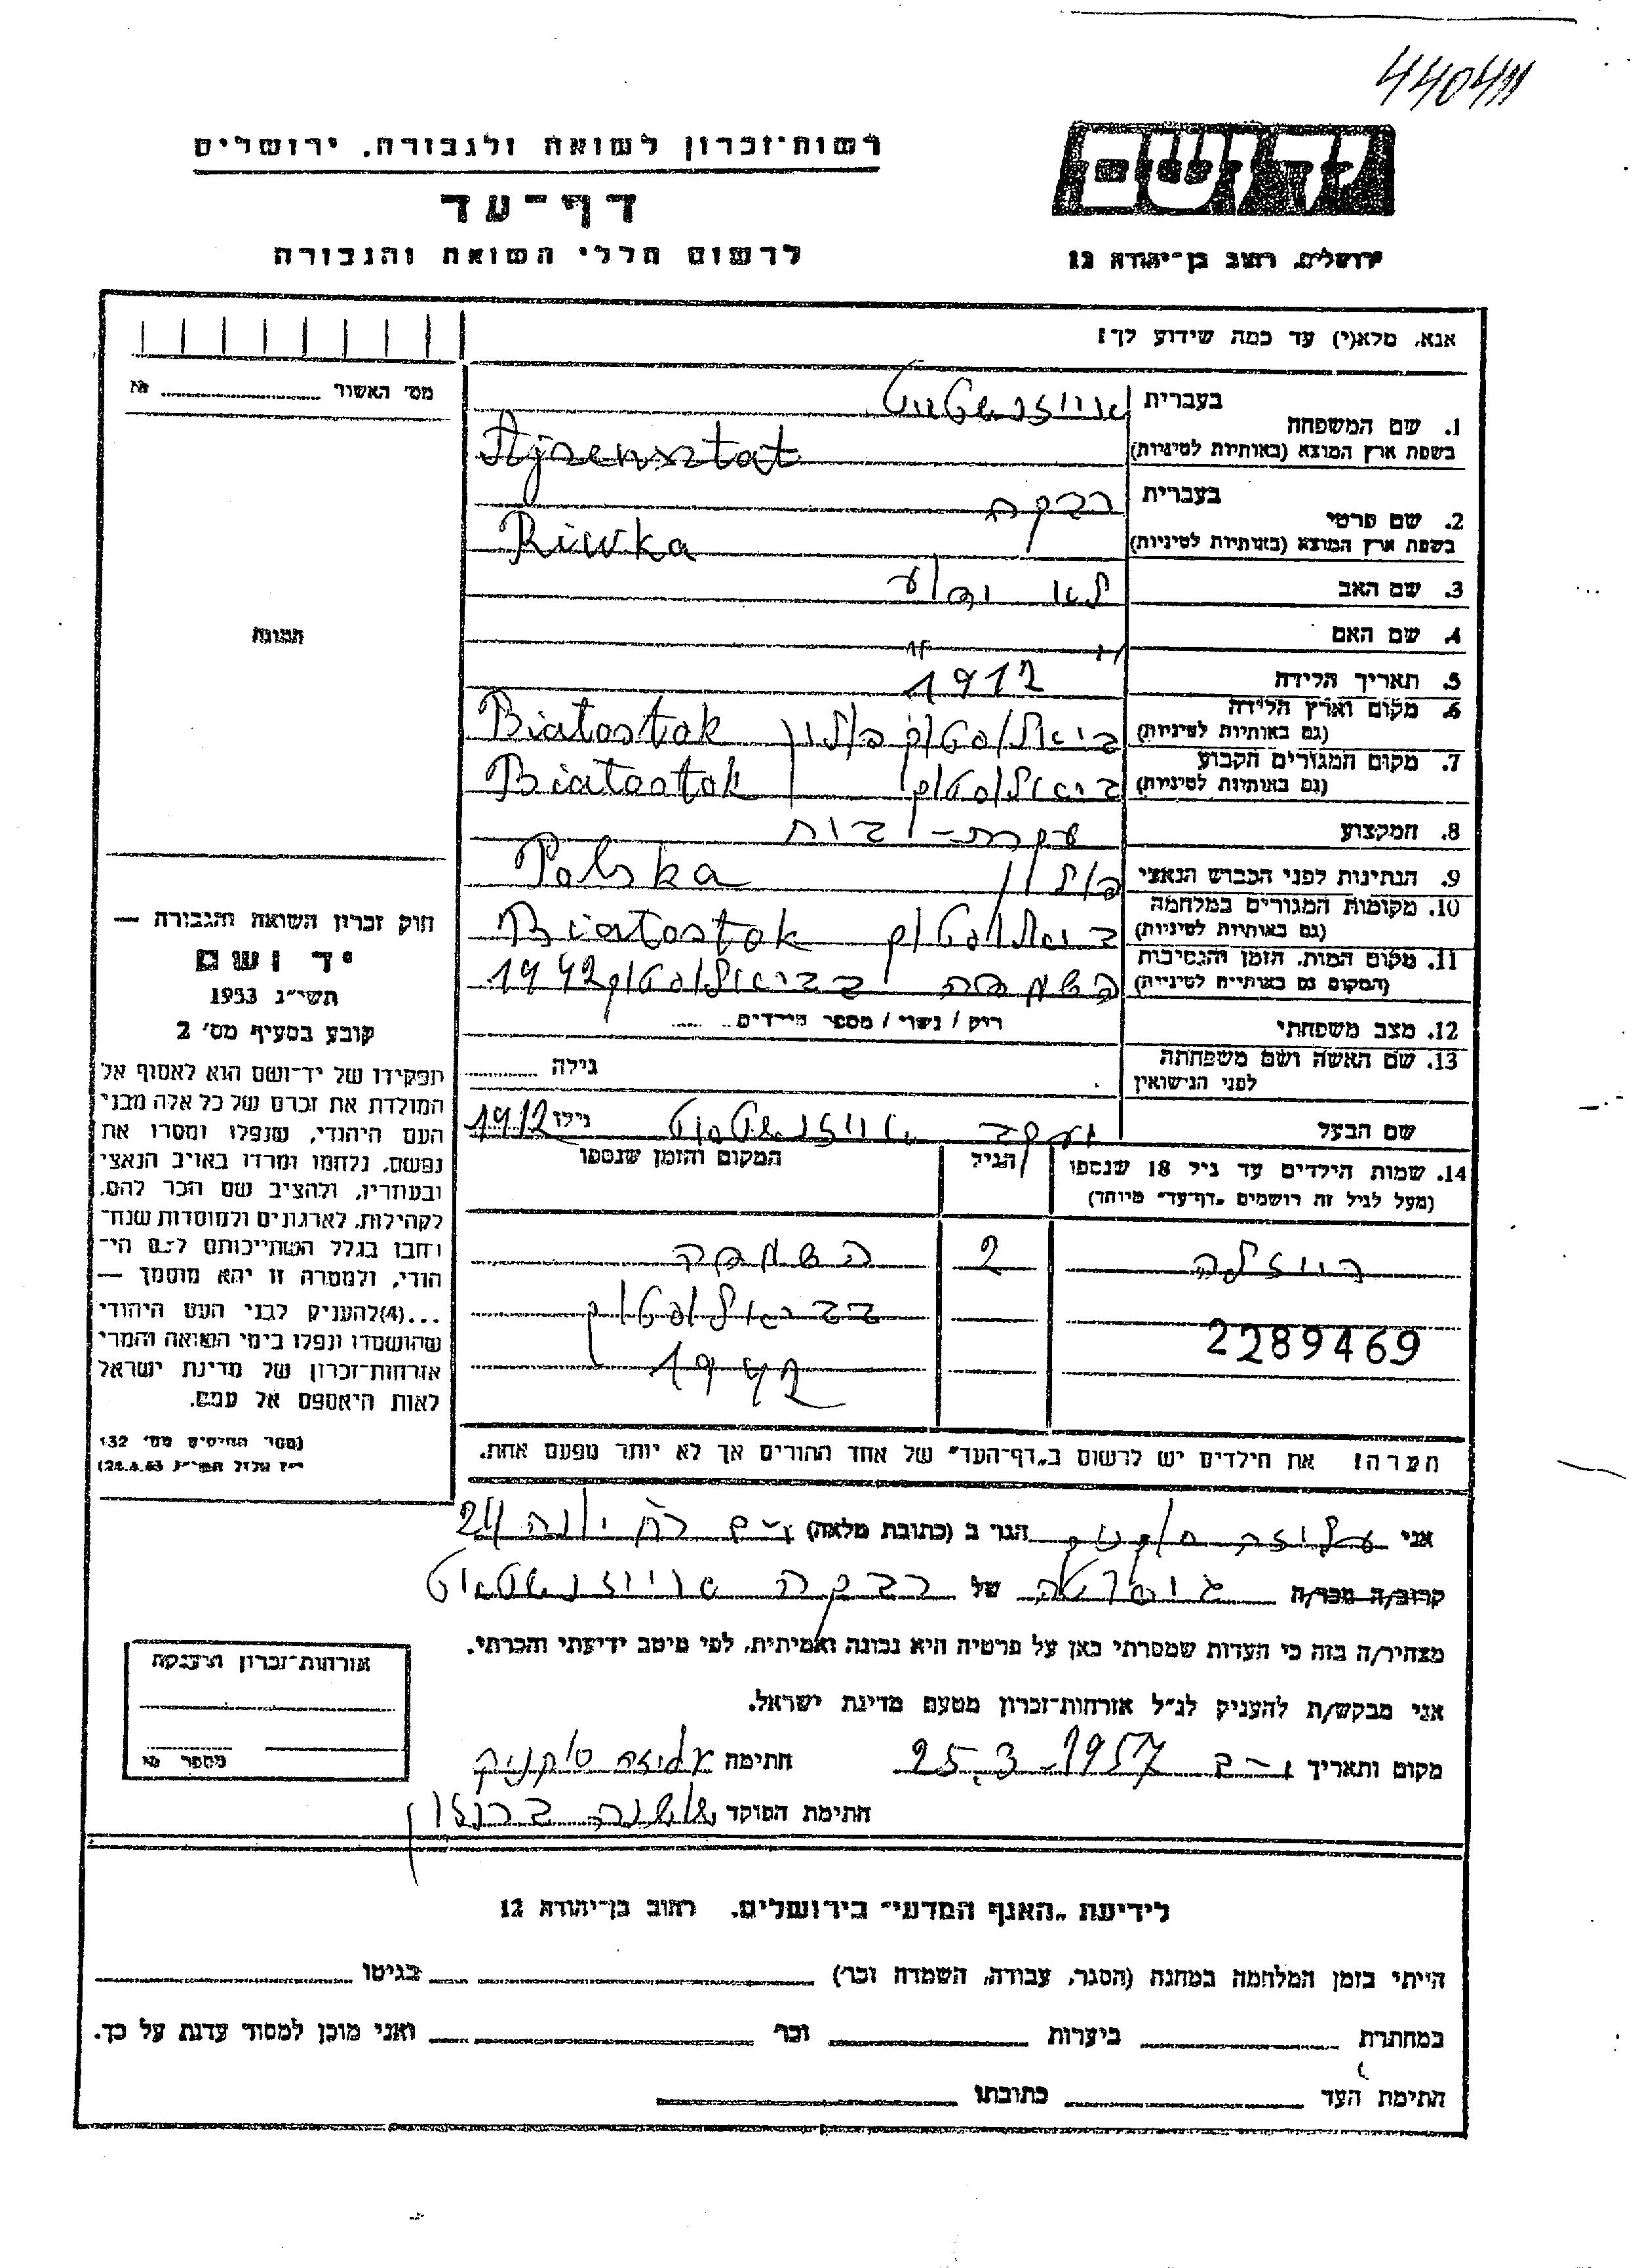 440411
יד ושם
ירושלים, רחוב בן־יהודה 12
רשות־זכרון לשואה ולגבורה, ירושלים
דף־עד
לרשום חללי השואה והגבורה
אנא, מלא(י) עד כמה שידוע לך!
1. שם המשפחה
בעברית אייזנשטט
בשפת ארץ המוצא (באותיות לטיניות) Ajzensztat
2. שם פרטי
בעברית רבקה
בשפת ארץ המוצא (באותיות לטיניות) Riwka
3. שם האב לא ידוע
4. שם האם " "
5. תאריך הלידה 1912
6. מקום וארץ הלידה
(גם באותיות לטיניות) ביאליסטוק פולין Biatostok
7. מקום המגורים הקבוע
(גם באותיות לטיניות) ביאליסטוק Biatostok
8. המקצוע עקרת-בית
9. הנתינות לפני הכבוש הנאצי פולין Polska
10. מקומות המגורים במלחמה
(גם באותיות לטיניות) ביאליסטוק Biatostok
11. מקום המות, הזמן והנסיבות
(המקום גם באותיות לטיניות) השמדה בביאליסטוק 1942
12. מצב משפחתי רוק / נשוי / מספר הילדים
13. שם האשה ושם משפחתה
לפני הנישואין גילה
שם הבעל יעקב אייזנשטט גילו 1912
14. שמות הילדים עד גיל 18 שנספו
(מעל לגיל זה רושמים "דף־עד" מיוחד)
הגיל
המקום והזמן שנספו
רוזלה 2 השמדה
בביאליסטוק
2289469
1942
הערה! את הילדים יש לרשום ב"דף־העד" של אחד ההורים אך לא יותר מפעם אחת.
מס' האשור
תמונה
חוק זכרון השואה והגבורה —
יד ושם
תשי"ג 1953
קובע בסעיף מס' 2
תפקידו של יד־ושם הוא לאסוף אל
המולדת את זכרם של כל אלה מבני
העם היהודי, שנפלו ומסרו את
נפשם, נלחמו ומרדו באויב הנאצי
ובעוזריו, ולהציב שם וזכר להם,
לקהילות, לארגונים ולמוסדות שנח־
רבו בגלל השתייכותם לעם הי־
הודי, ולמטרה זו יהא מוסמך —
...(4) להעניק לבני העם היהודי
שהושמדו ונפלו בימי השואה והמרי
אזרחות־זכרון של מדינת ישראל
לאות היאספם אל עמם.
(ספר החוקים מס' 132
אני עליזה הגר ב (כתובת מלאה) 24
קרוב/ה מכר/ה של רבקה אייזנשטט
מצהיר/ה בזה כי העדות שמסרתי כאן על פרטיה היא נכונה ואמיתית, לפי מיטב ידיעתי והכרתי.
אני מבקש/ת להעניק לנ"ל אזרחות־זכרון מטעם מדינת ישראל.
מקום ותאריך 25.3.1957 חתימה עליזה
חתימת הפוקד שושנה
אזרחות־זכרון הוענקה
מספר
לידיעת "האגף המדעי" בירושלים, רחוב בן־יהודה 12
הייתי בזמן המלחמה במחנה (הסגר, עבודה, השמדה וכו') בגיטו
במחתרת ביערות וכו' ואני מוכן למסור עדות על כך.
חתימת העד כתובתו